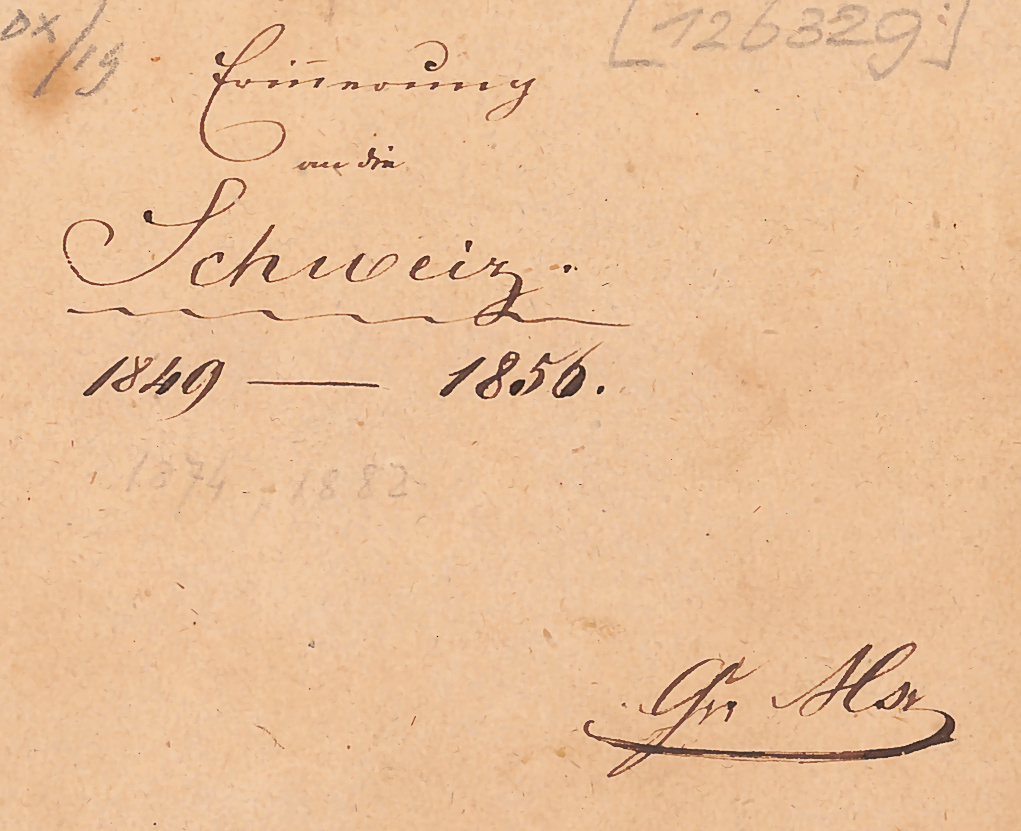 DX/19
[126329:]
Erinnerung
an die
Schweiz.
1849 — 1856.
1874, 1882